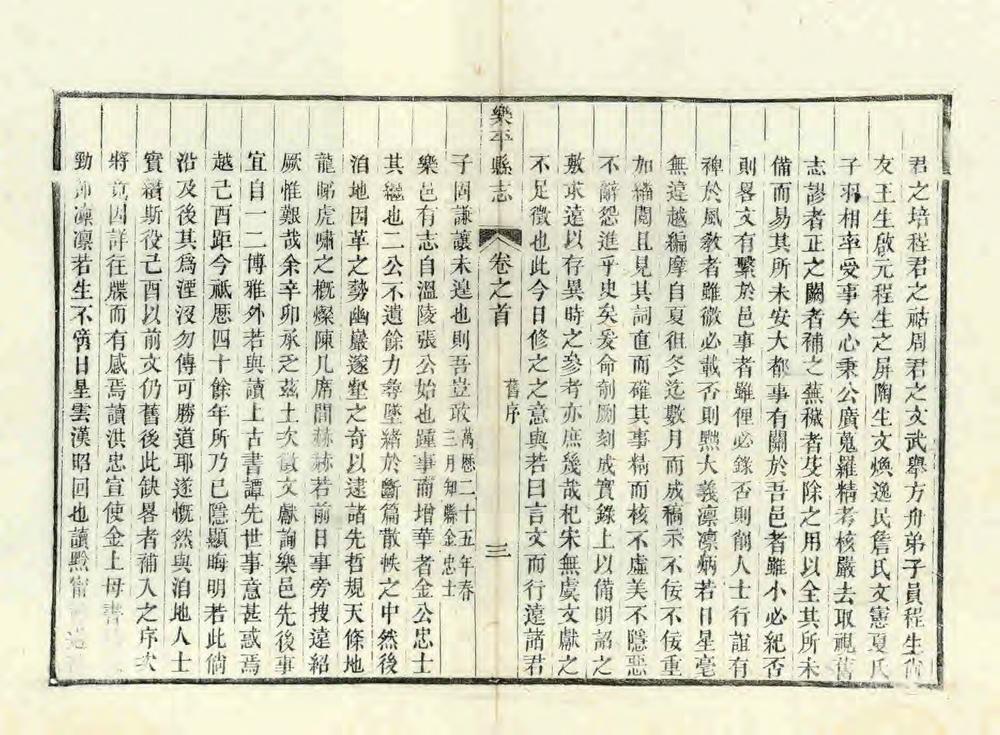 君之培程君之祜周君之文武舉方舟弟子員程生尙
友王生啟元程生之屏陶生文煥逸民詹氏文憲夏氏
子羽相率受事矢心秉公廣蒐羅精考核嚴去取視舊
志謬者正之闕者補之蕪穢者芟除之用以全其所未
備而易其所未安大都事有關於吾邑者雖小必紀否
則畧文有繫於邑事者雖俚必錄否則削人士行誼有
裨於風敎者雖微必載否則黜大義凛凛炳若日星毫
無遺越編摩自夏徂冬迄數月而成稿示不佞不佞重
加繙閱且見其詞直而確其事精而核不虛美不隱惡
不辭怨進乎史矣爰命剞劂刻成實錄上以備明詔之
敷求遠以存異時之參考亦庶幾哉杞宋無虞文獻之
不足徵也此今日修之之意與若曰言文而行遠諸君
樂平縣志
卷之首
舊序
三
子固謙讓未遑也則吾豈敢萬歷二十五年春
三月知縣金忠士
樂邑有志自溫陵張公始也踵事而增華者金公忠士
其繼也二公不遺餘力尋墜緒於斷篇散帙之中然後
洎地因革之勢幽巖邃壑之奇以逮諸先哲規天條地
龍睇虎嘯之概燦陳几席間赫赫若前日事旁搜遠紹
厥惟艱哉余辛卯承乏茲土次徵文獻詢樂邑先後事
宜自一二博雅外若與讀上古書譚先世事意甚惑焉
越己酉距今祇歷四十餘年所乃已隱顯晦明若此倘
沿及後其爲湮沒勿傳可勝道耶遂慨然與洎地人士
實纘斯役己酉以前文仍舊後此缺畧者補入之序次
將竟因詳往牒而有感焉讀洪忠宣使金上母書
勁 凛凛若生不啻日星雲漢昭回也讀黔甯